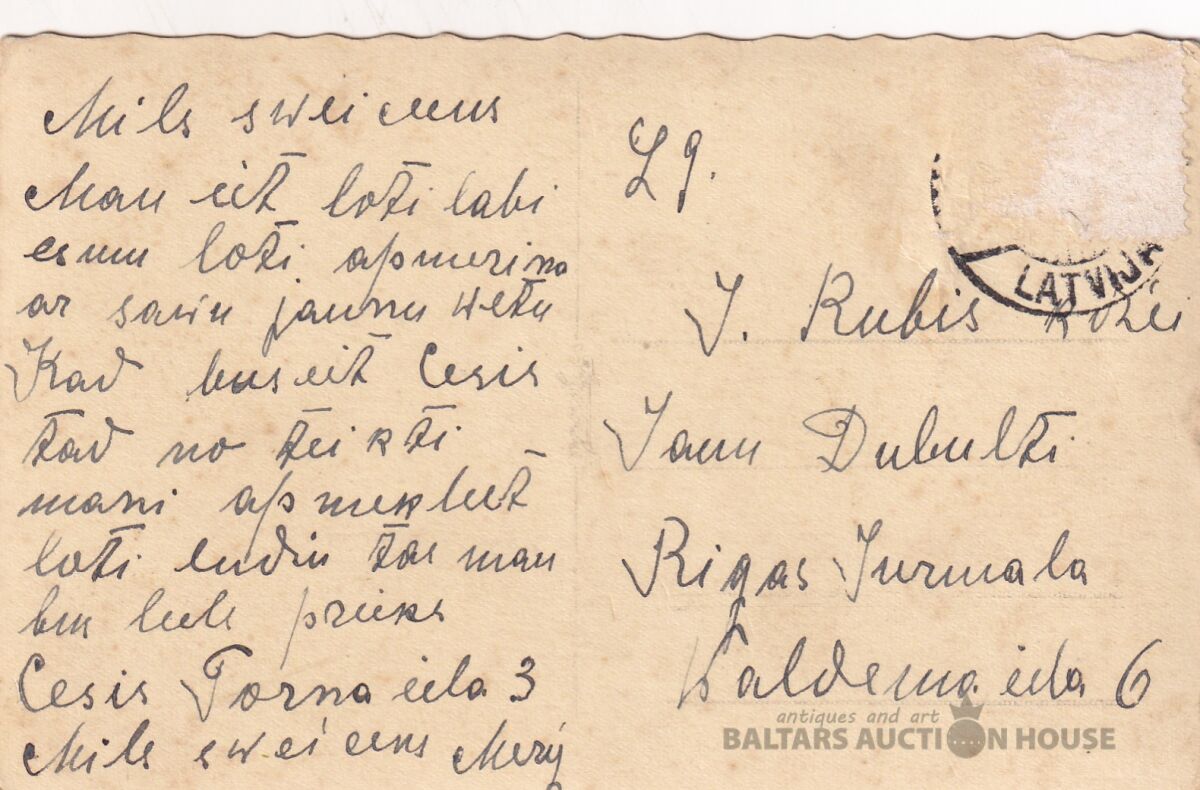 Mils sweiciens
Man iet loti labi
esmu loti apmierina
ar sawu jaunu wietu
Kad busiet Cesis
tad no teikti
mani apmeklet
loti ludzu tas man
bus liels prieks
Cesis Torna iela 3
Mils sweiciens Mery
Lg.
J. Rubis kdze
Jaun Dubulti
Rigas Jurmala
Waldema iela 6
LATVIJA
antiques and art
BALTARS AUCTION HOUSE